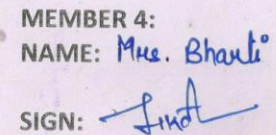 MEMBER 4:
NAME: Mrs. Bharti
SIGN: